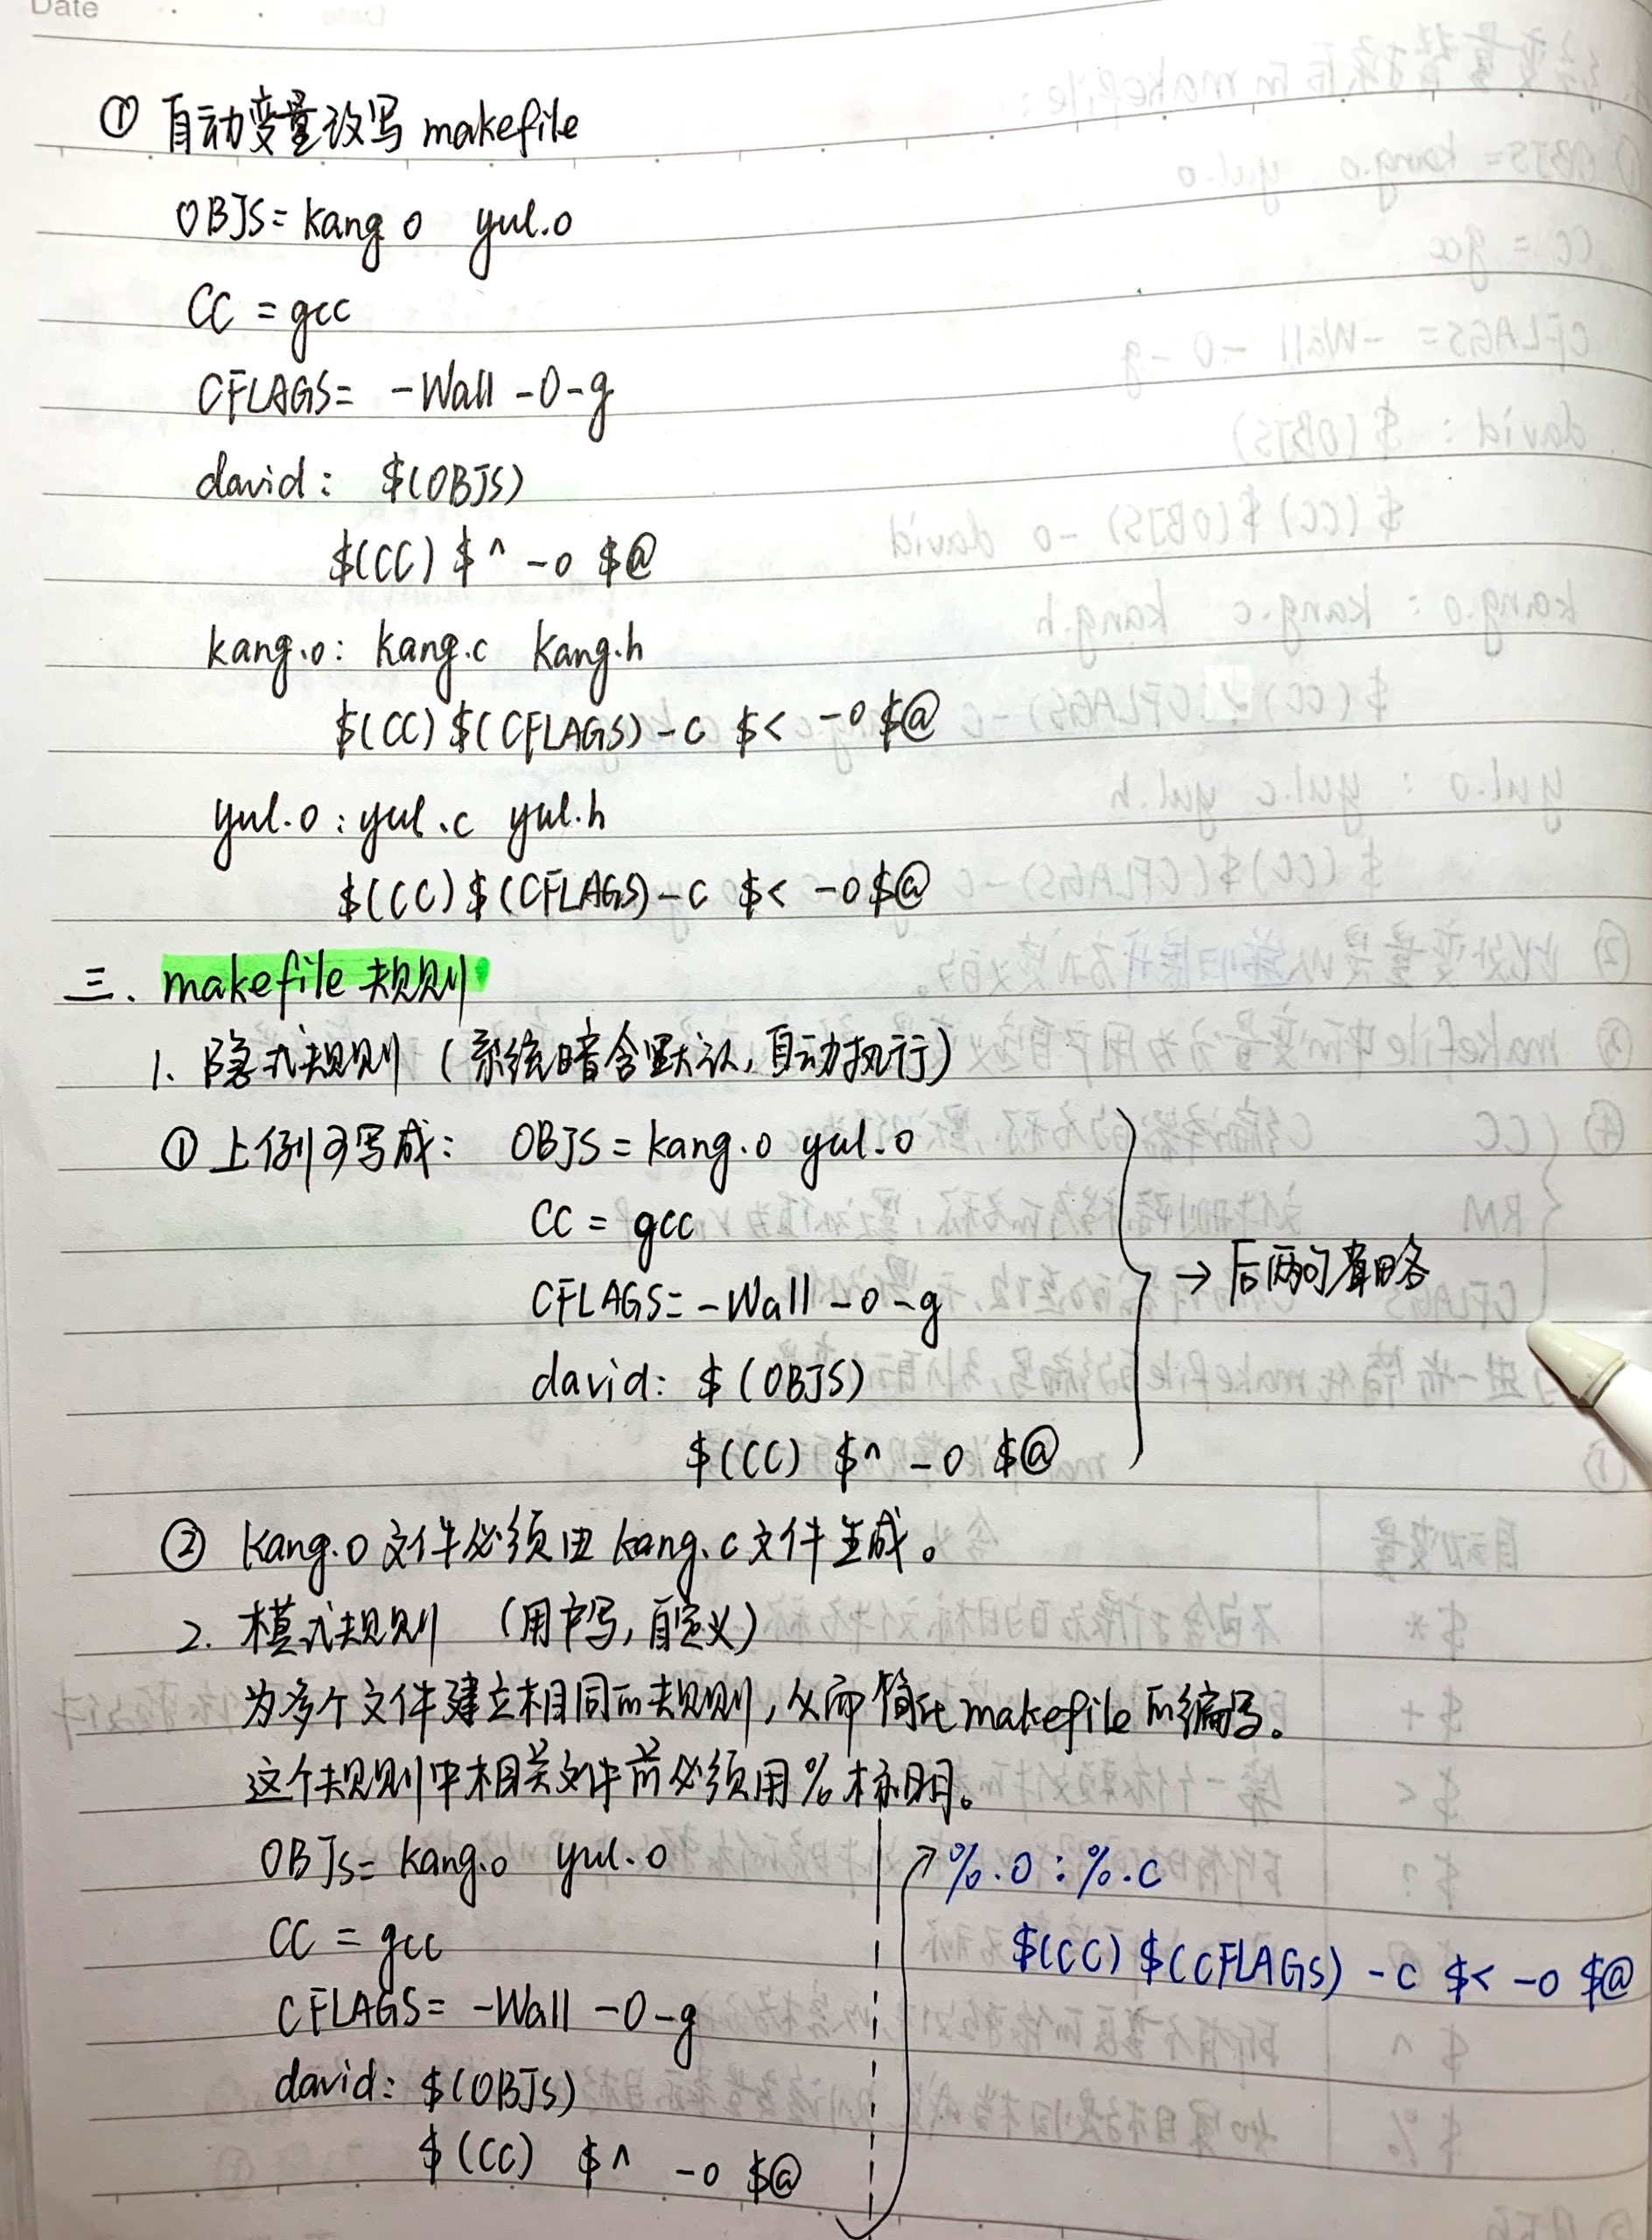 Date
① 自动变量改写 makefile
OBJS= kang o yul.o
CC = gcc
CFLAGS= -Wall -O -g
david: $(OBJS)
$(CC) $^ -o $@
kang.o: kang.c kang.h
$(CC) $(CFLAGS) -c $< -o $@
yul.o: yul.c yul.h
$(CC) $(CFLAGS) -c $< -o $@
三. makefile 规则
1. 隐式规则 (系统暗含默认, 自动执行)
① 上例可写成: OBJS = kang.o yul.o
CC = gcc
CFLAGS= -Wall -O -g
→ 后两句省略
david: $(OBJS)
$(CC) $^ -o $@
② kang.o 文件必须由 kang.c 文件生成。
2. 模式规则 (用户写, 自定义)
为多个文件建立相同的规则, 从而简化 makefile 的编写。
这个规则中相关文件前必须用 % 标明。
OBJS= kang.o yul.o
CC = gcc
CFLAGS= -Wall -O -g
david: $(OBJS)
$(CC) $^ -o $@
%.o : %.c
$(CC) $(CFLAGS) -c $< -o $@